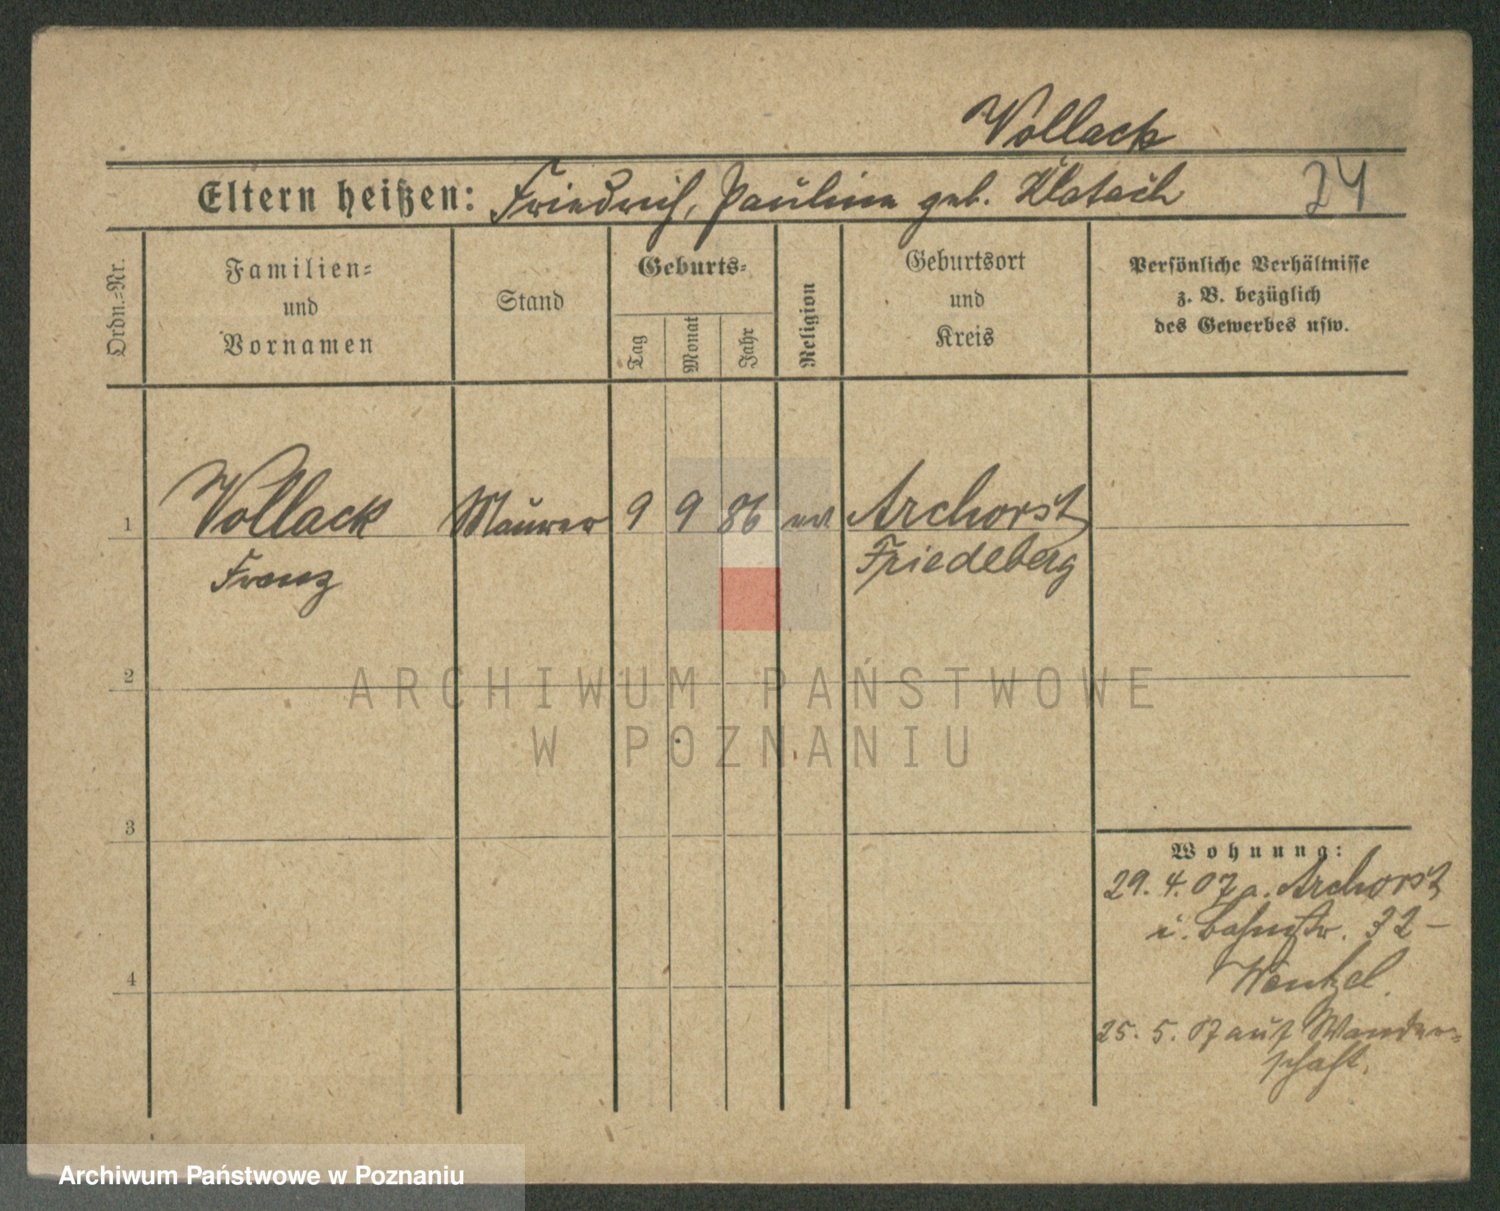 Vollack
Eltern heißen: Friedrich, Pauline geb. Klatach
24
Ordn.=Nr.
Familien=
und
Vornamen
Stand
Geburts=
Tag
Monat
Jahr
Religion
Geburtsort
und
Kreis
Persönliche Verhältnisse
z. B. bezüglich
des Gewerbes usw.
1
Vollack Maurer 9 9 86 Archorst
Franz Friedeberg
2
ARCHIWUM PAŃSTWOWE
W POZNANIU
3
Wohnung:
29. 4. 07 a. Archorst
Bahnstr. 32 –
4
Wentzel.
25. 5. 07 auf Wander=
schaft.
Archiwum Państwowe w Poznaniu